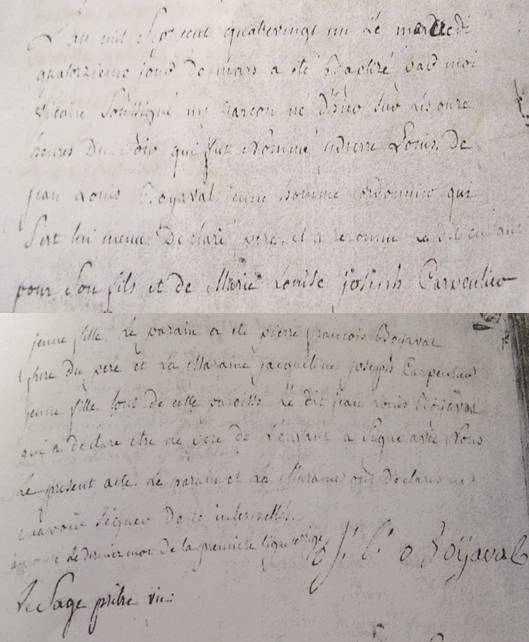 L'an mil sept cent quatrevingt un le mercredi
quatorzieme jour de mars a été Baptisé par moi
vicaire soussigné un garcon né d'hier sur les onze
heures du soir qui fut nommé pierre Louis, de
jean Louis Boyaval jeune homme cordonnier qui
s'est lui meme declaré pere, et a reconnu le dit enfant
pour son fils et de Marie Louise joseph Carpentier
jeune fille. Le parain a été pierre françois Boyaval
frere du pere et La Maraine jacqueline joseph Carpentier
jeune fille tous de cette paroisse. Le dit jean Louis Boyaval
qui a declaré etre le pere de l'enfant a signé avec Nous
le present acte. Le parain et La Maraine ont declaré ne
scavoir signer de ce interpellés.
approuvé le dernier mot de la premiere ligne
J. L. Boyaval
Le Sage prêtre vic: